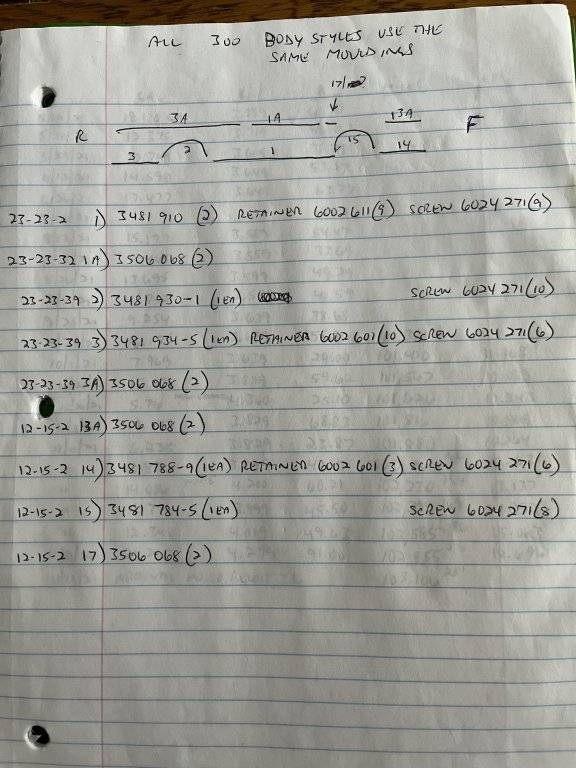 ALL 300 BODY STYLES USE THE
SAME MOULDINGS
17/
3A 1A 13A
R F
3 2 1 15 14
23-23-2 1) 3481 910 (2) RETAINER 6002 611(9) SCREW 6024 271(9)
23-23-32 1A) 3506 068 (2)
23-23-39 2) 3481 930-1 (1EA) SCREW 6024 271(10)
23-23-39 3) 3481 934-5 (1EA) RETAINER 6002 601(10) SCREW 6024 271(6)
23-23-39 3A) 3506 068 (2)
12-15-2 13A) 3506 068 (2)
12-15-2 14) 3481 788-9 (1EA) RETAINER 6002 601(3) SCREW 6024 271(6)
12-15-2 15) 3481 784-5 (1EA) SCREW 6024 271(8)
12-15-2 17) 3506 068 (2)